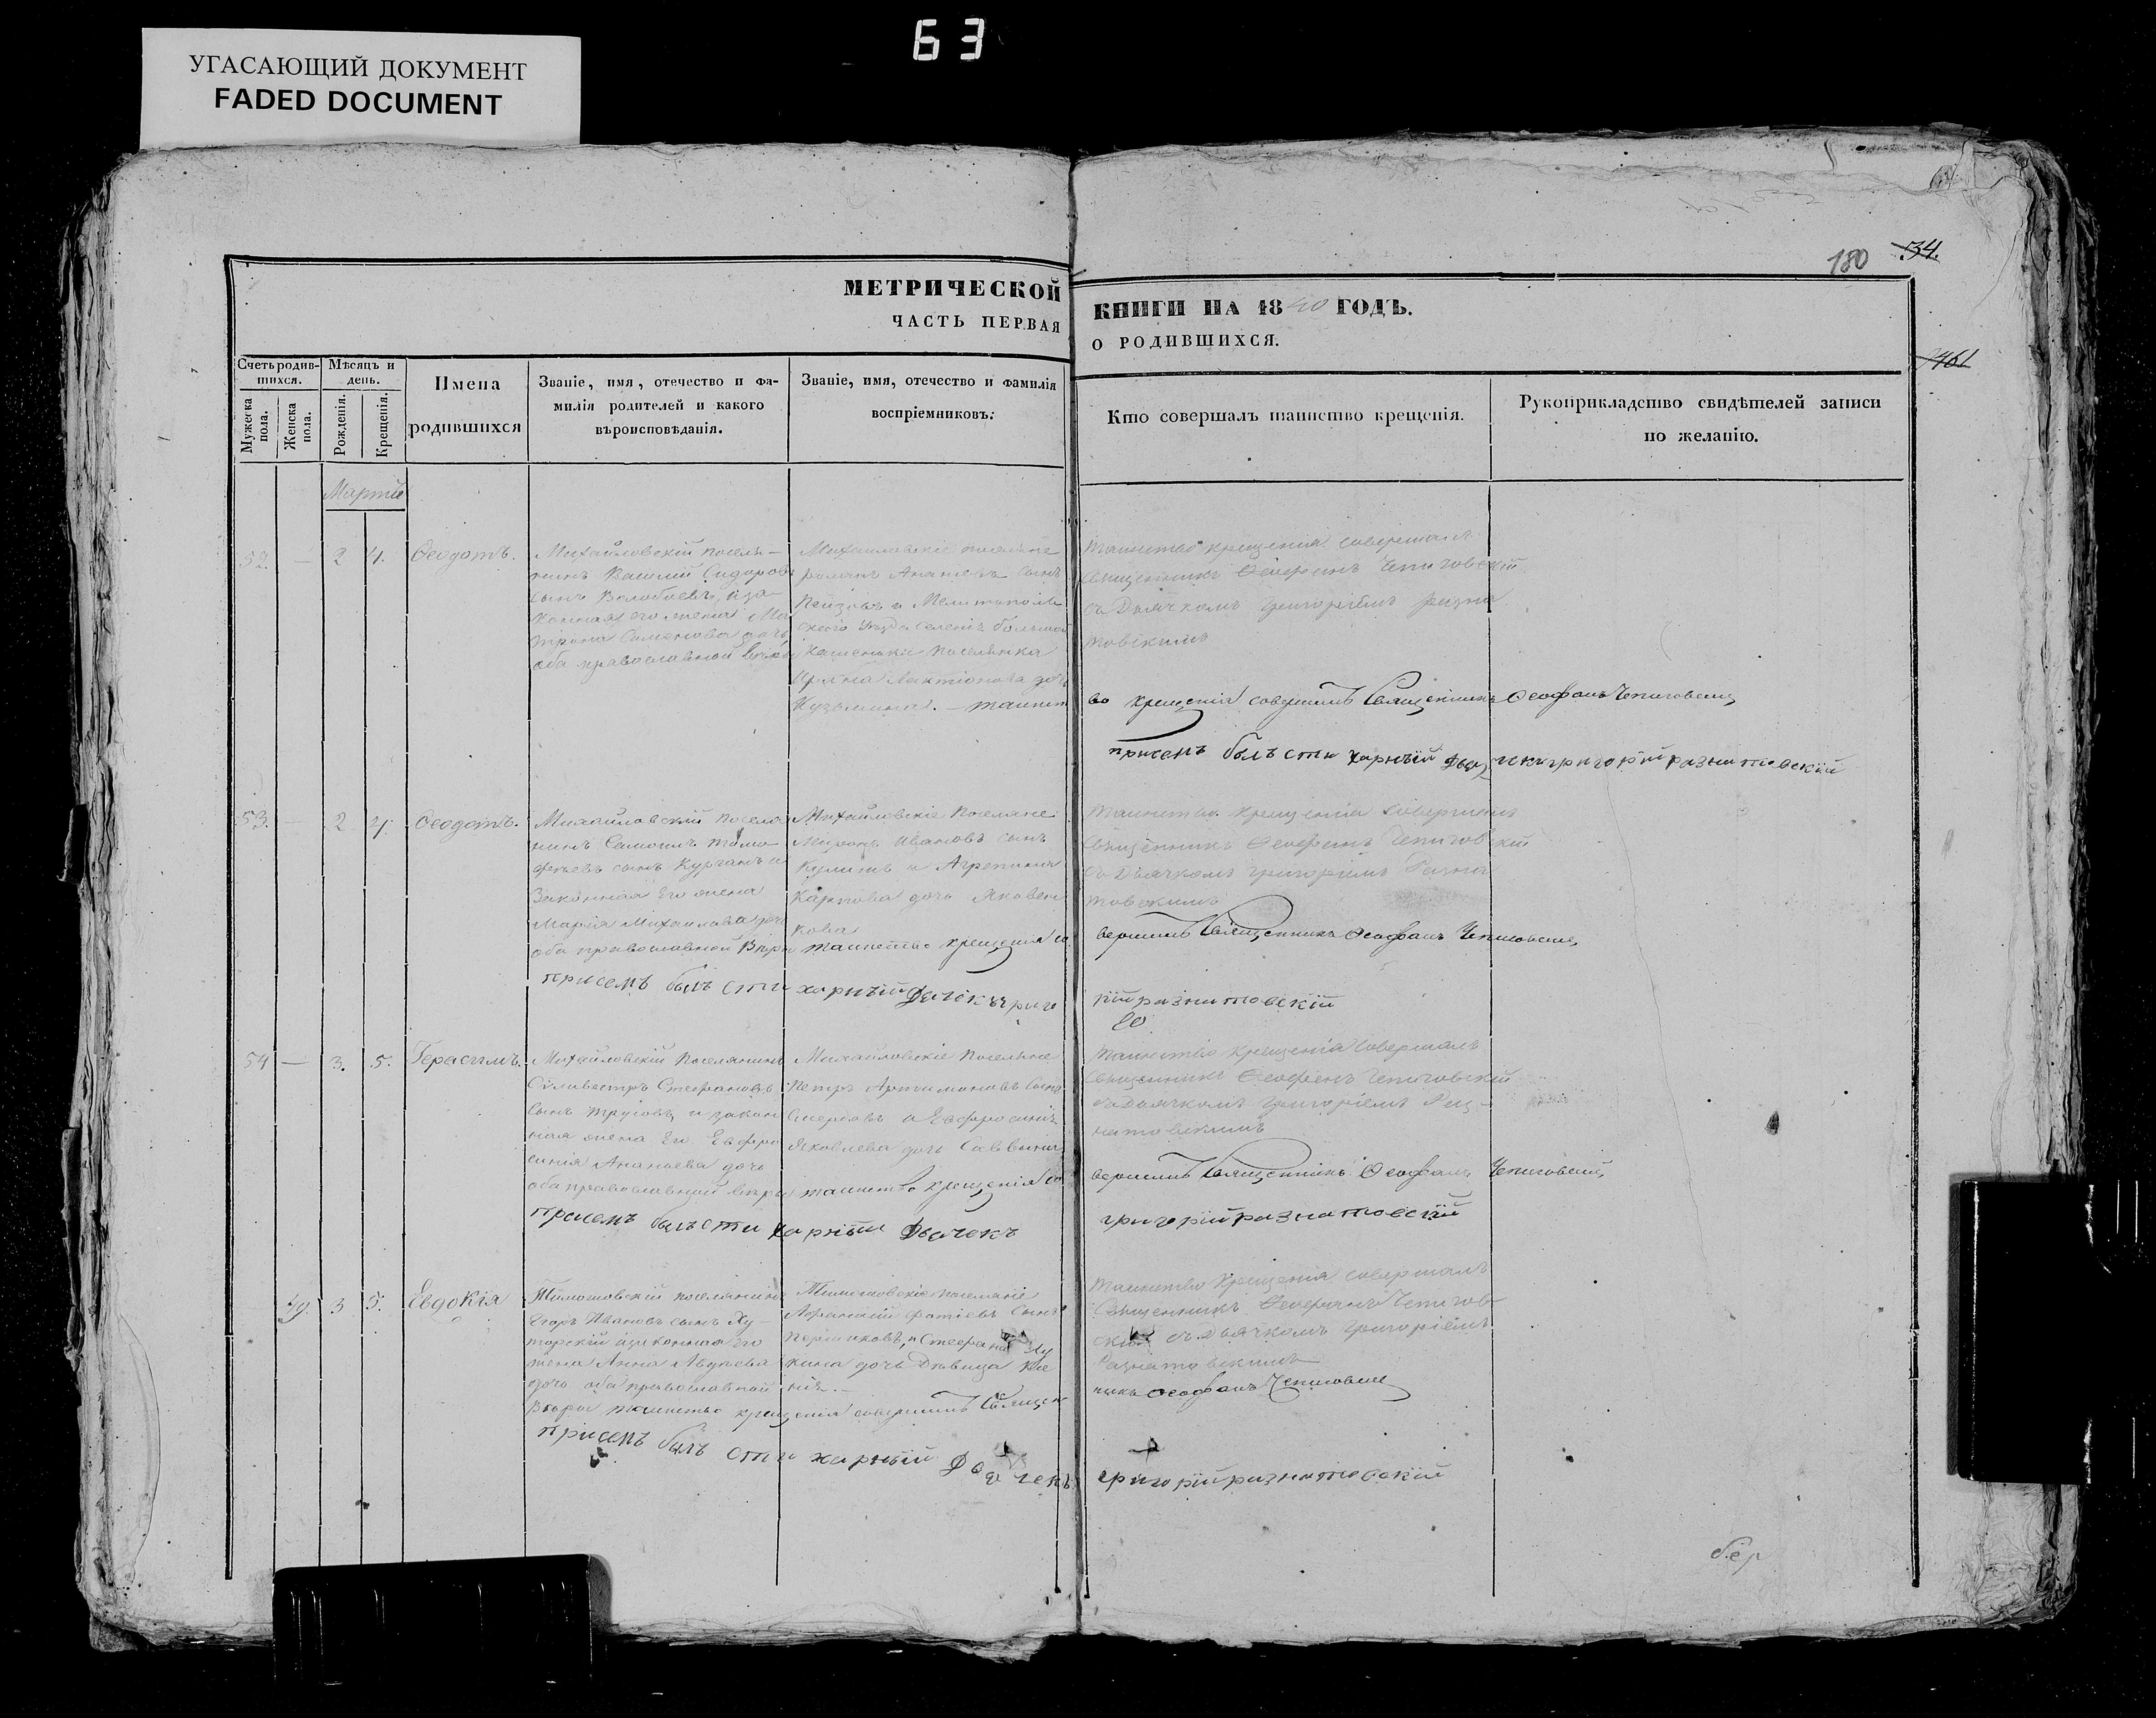 63
УГАСАЮЩИЙ ДОКУМЕНТ
FADED DOCUMENT
180 34.
МЕТРИЧЕСКОЙ КНИГИ НА 1840 ГОДЪ.
ЧАСТЬ ПЕРВАЯ О РОДИВШИХСЯ.
461
Счетъ родившихся.
Мужеска пола.
Женска пола.
Мѣсяцъ и день.
Рожденія.
Крещенія.
Имена
родившихся
Званіе, имя, отечество и фа-
милія родителей и какого
вѣроисповѣданія.
Званіе, имя, отечество и фамилія
воспріемниковъ.
Кто совершалъ таинство крещенія.
Рукоприкладство свидѣтелей записи
по желанію.
Мартъ
52. — 2 4. Ѳеодотъ.
Михайловскій поселя-
нинъ Василій Сидоровъ
сынъ Волобоевъ, и за-
конная его жена Ма
трона Семенова дочь
оба православной вѣры
Михайловскіе поселяне
романъ Ананьевъ сынъ
и Мелитополь
скаго уѣзда селенія большой
поселянка
Лактіонова дочь
Кузьмина. — таинст
Таинство крещенія совершалъ
Священникъ Ѳеофанъ Чепиговскій
съ Дьячкомъ Григоріемъ Разна
товскимъ
во крещенія совершилъ Священникъ Ѳеофанъ Чепиговскій
присемъ былъ стихарный Дьячекъ григорій разнатовскій
53. — 2 4. Ѳеодотъ.
Михайловскій поселя
нинъ Самоилъ Тимо
феевъ сынъ Курганъ и
Законная Его жена
Марія Михайлова дочь
оба православной вѣры
Михайловскіе поселяне
Миронъ Ивановъ сынъ
и Агрепина
Карпова дочь Яковен
кова
таинство крещенія со
Таинство крещенія совершилъ
Священникъ Ѳеофанъ Чепиговскій
съ Дьячкомъ григоріемъ Разна
товскимъ
вершилъ Священникъ Ѳеофанъ Чепиговскій,
присемъ былъ стихарный Дьячекъ григо
рій разнатовскій
54 — 3. 5. Герасимъ.
Михайловскій Поселянинъ
Сильвестръ Стефановъ
сынъ и закон
ная жена Его Евфро
синія Ананьева дочь
оба православной вѣры
Михайловскіе поселяне
Петръ Артимоновъ сынъ
и Евфросинія
Яковлева дочь Саввина
таинство крещенія со
Таинство крещенія совершалъ
Священникъ Ѳеофанъ Чепиговскій
съ Дьячкомъ григоріемъ Раз-
натовскимъ
вершилъ Священникъ Ѳеофанъ Чепиговскій,
присемъ былъ стихарный Дьячекъ
григорій разнатовскій
49 3 5. Евдокія
Тимошовскій поселянинъ
Егоръ Ивановъ сынъ Ху-
торскій и законная Его
жена Анна Авдѣева
дочь оба православной
вѣры таинство крещенія совершилъ Священ
Тимошовскіе поселяне
Афанасій Фотіевъ сынъ
и Стефана
кина дочь Дѣвица
Таинство Крещенія совершалъ
Священникъ Ѳеофанъ Чепигов
скій съ Дьячкомъ григоріемъ
Разнатовскимъ
никъ Ѳеофанъ Чепиговскій
присемъ былъ стихарный Дьячекъ
григорій разнатовскій